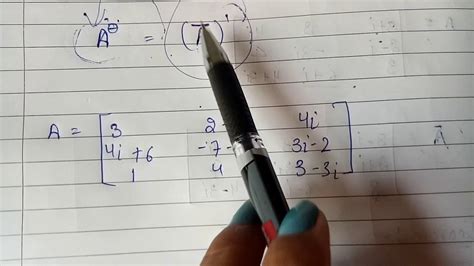 A^θ = (A̅)'
A = [ 3 2 4i
4i+6 -7- 3i-2
1 4 3-3i ]
A̅